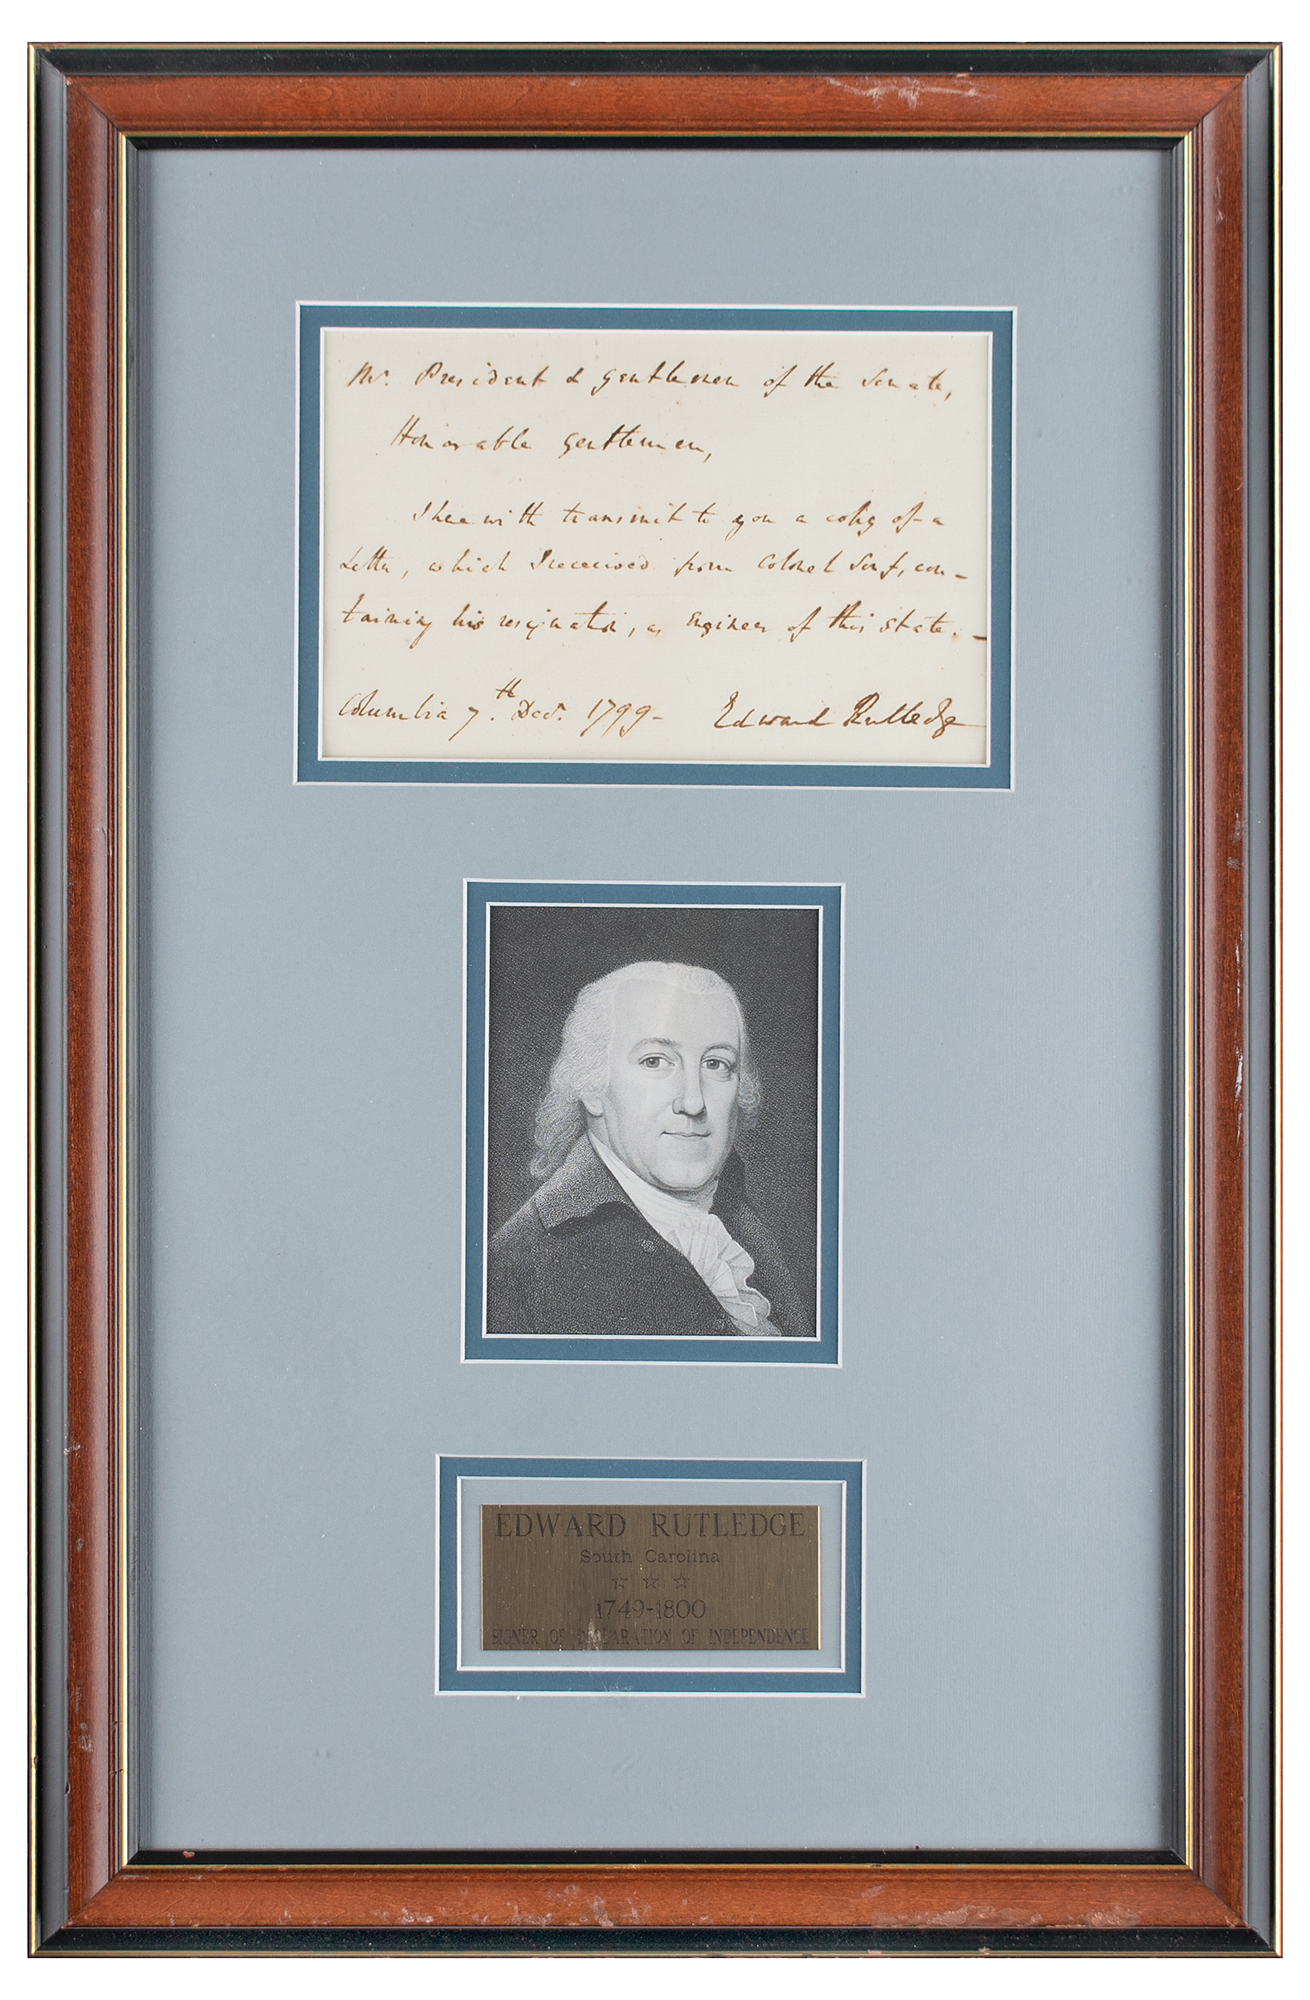 Mr. President & gentlemen of the Senate,
Honorable gentlemen,
I herewith transmit to you a copy of a
Letter, which I received from Colonel Senf, con-
taining his resignation, as Engineer of this State. –
Columbia 7th. Decr. 1799 – Edward Rutledge
EDWARD RUTLEDGE
South Carolina
☆ ☆ ☆
1749-1800
SIGNER OF DECLARATION OF INDEPENDENCE